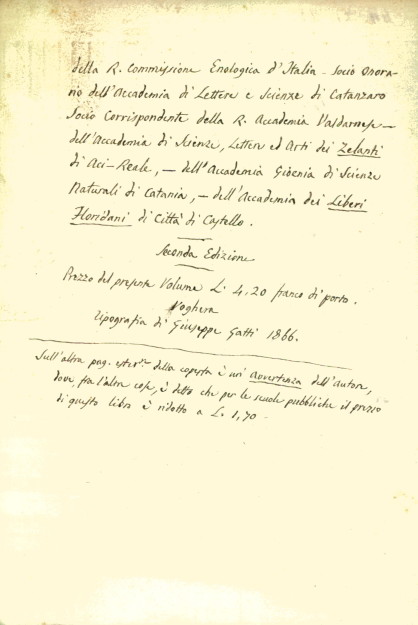 della R. Commissione Enologica d'Italia - Socio Onora-
rio dell'Accademia di Lettere e Scienze di Catanzaro
Socio Corrispondente della R. Accademia Valdarnese -
dell'Accademia di Scienze, Lettere ed Arti dei Zelanti
di Aci-Reale, - dell'Accademia Gioenia di Scienze
Naturali di Catania, - dell'Accademia dei Liberi
Floridani di Città di Castello.
Seconda Edizione
Prezzo del presente Volume L. 4,20 franco di porto.
Voghera
Tipografia di Giuseppe Gatti 1866.
Sull'altra pag. ester.ne della coperta è un' Avvertenza dell'Autore,
dove, fra l'altre cose, è detto che per le scuole pubbliche il prezzo
di questo libro è ridotto a L. 1,70 -